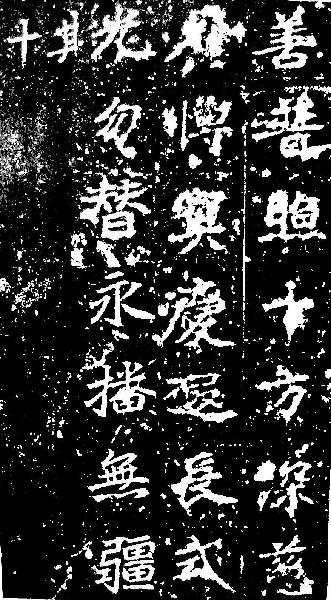 善普照十方深慈
博冥慶遐長式
光勿替永播無疆
其十